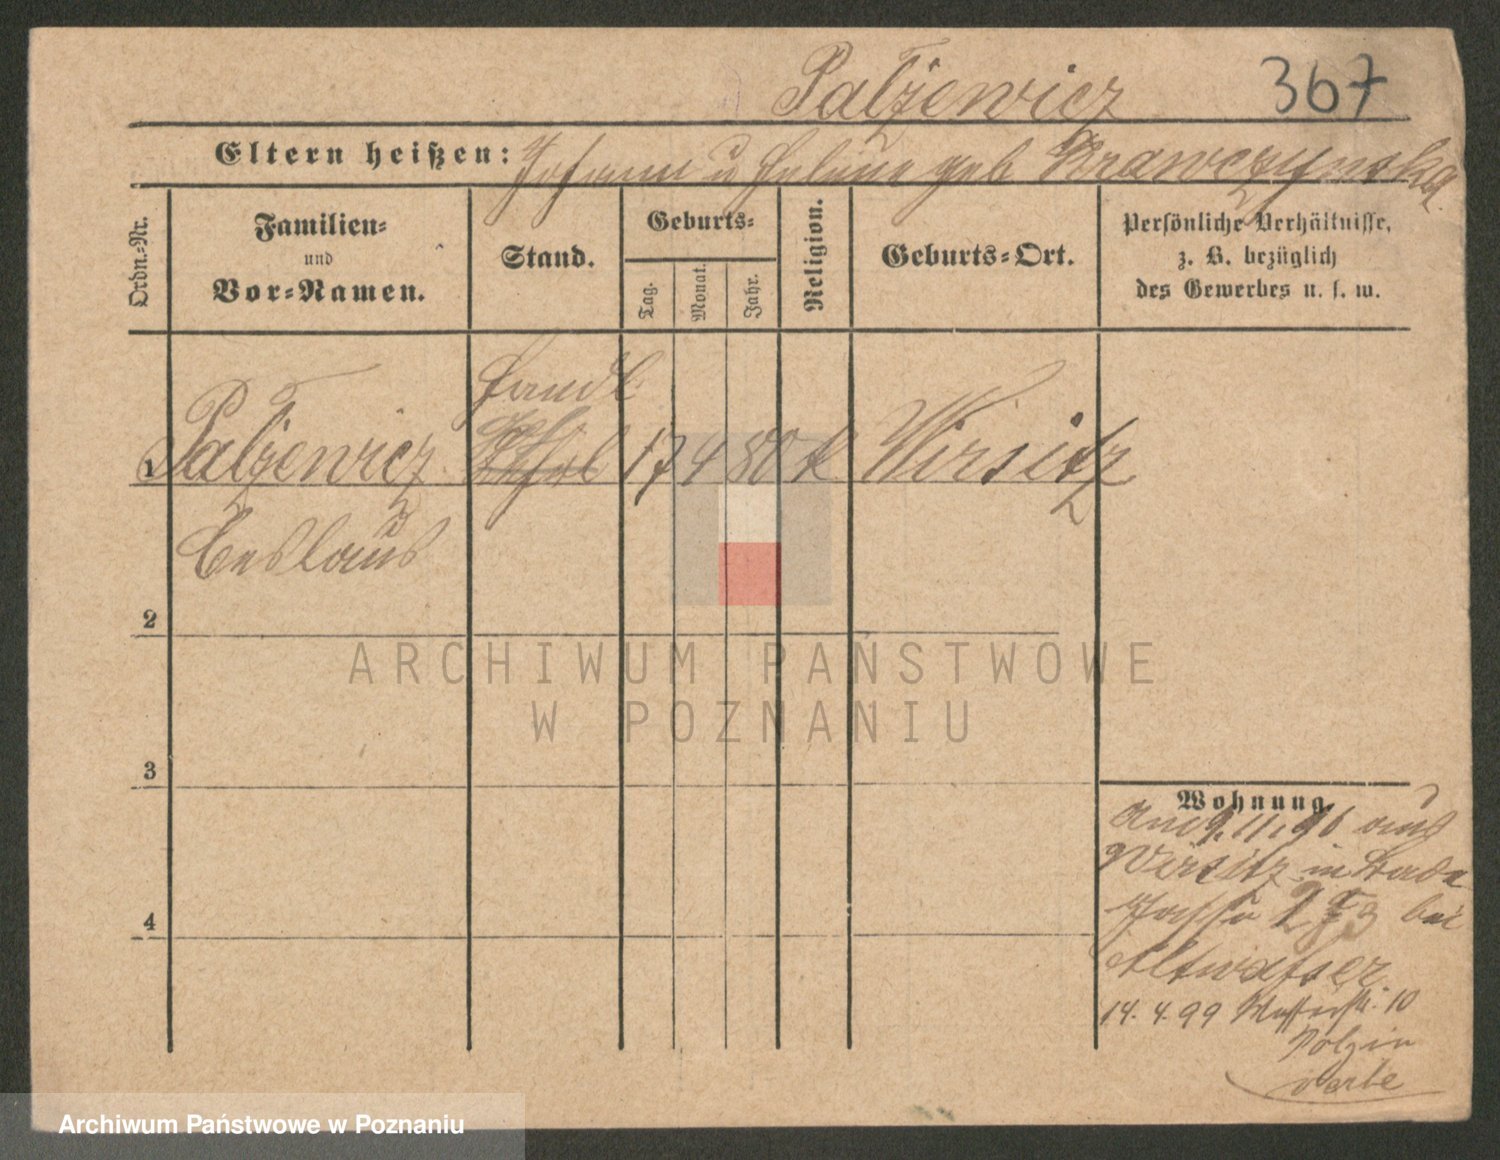 Palzewicz 367
Eltern heißen: Johann u Helene geb Krawczynska
Ordn.-Nr.
Familien-
und
Vor-Namen.
Stand.
Geburts-
Tag.
Monat.
Jahr.
Religion.
Geburts-Ort.
Persönliche Verhältnisse,
z. B. bezüglich
des Gewerbes u. s. w.
Handl
1 Palzewicz 17 4 80 k Wirsitz
Ceslaus
2
3
4
Wohnung
Am 9.11.96 aus
Wirsitz in
bei
Altwasser
14. 4. 99 Wasserstr. 10
Polzin
ARCHIWUM PAŃSTWOWE
W POZNANIU
Archiwum Państwowe w Poznaniu